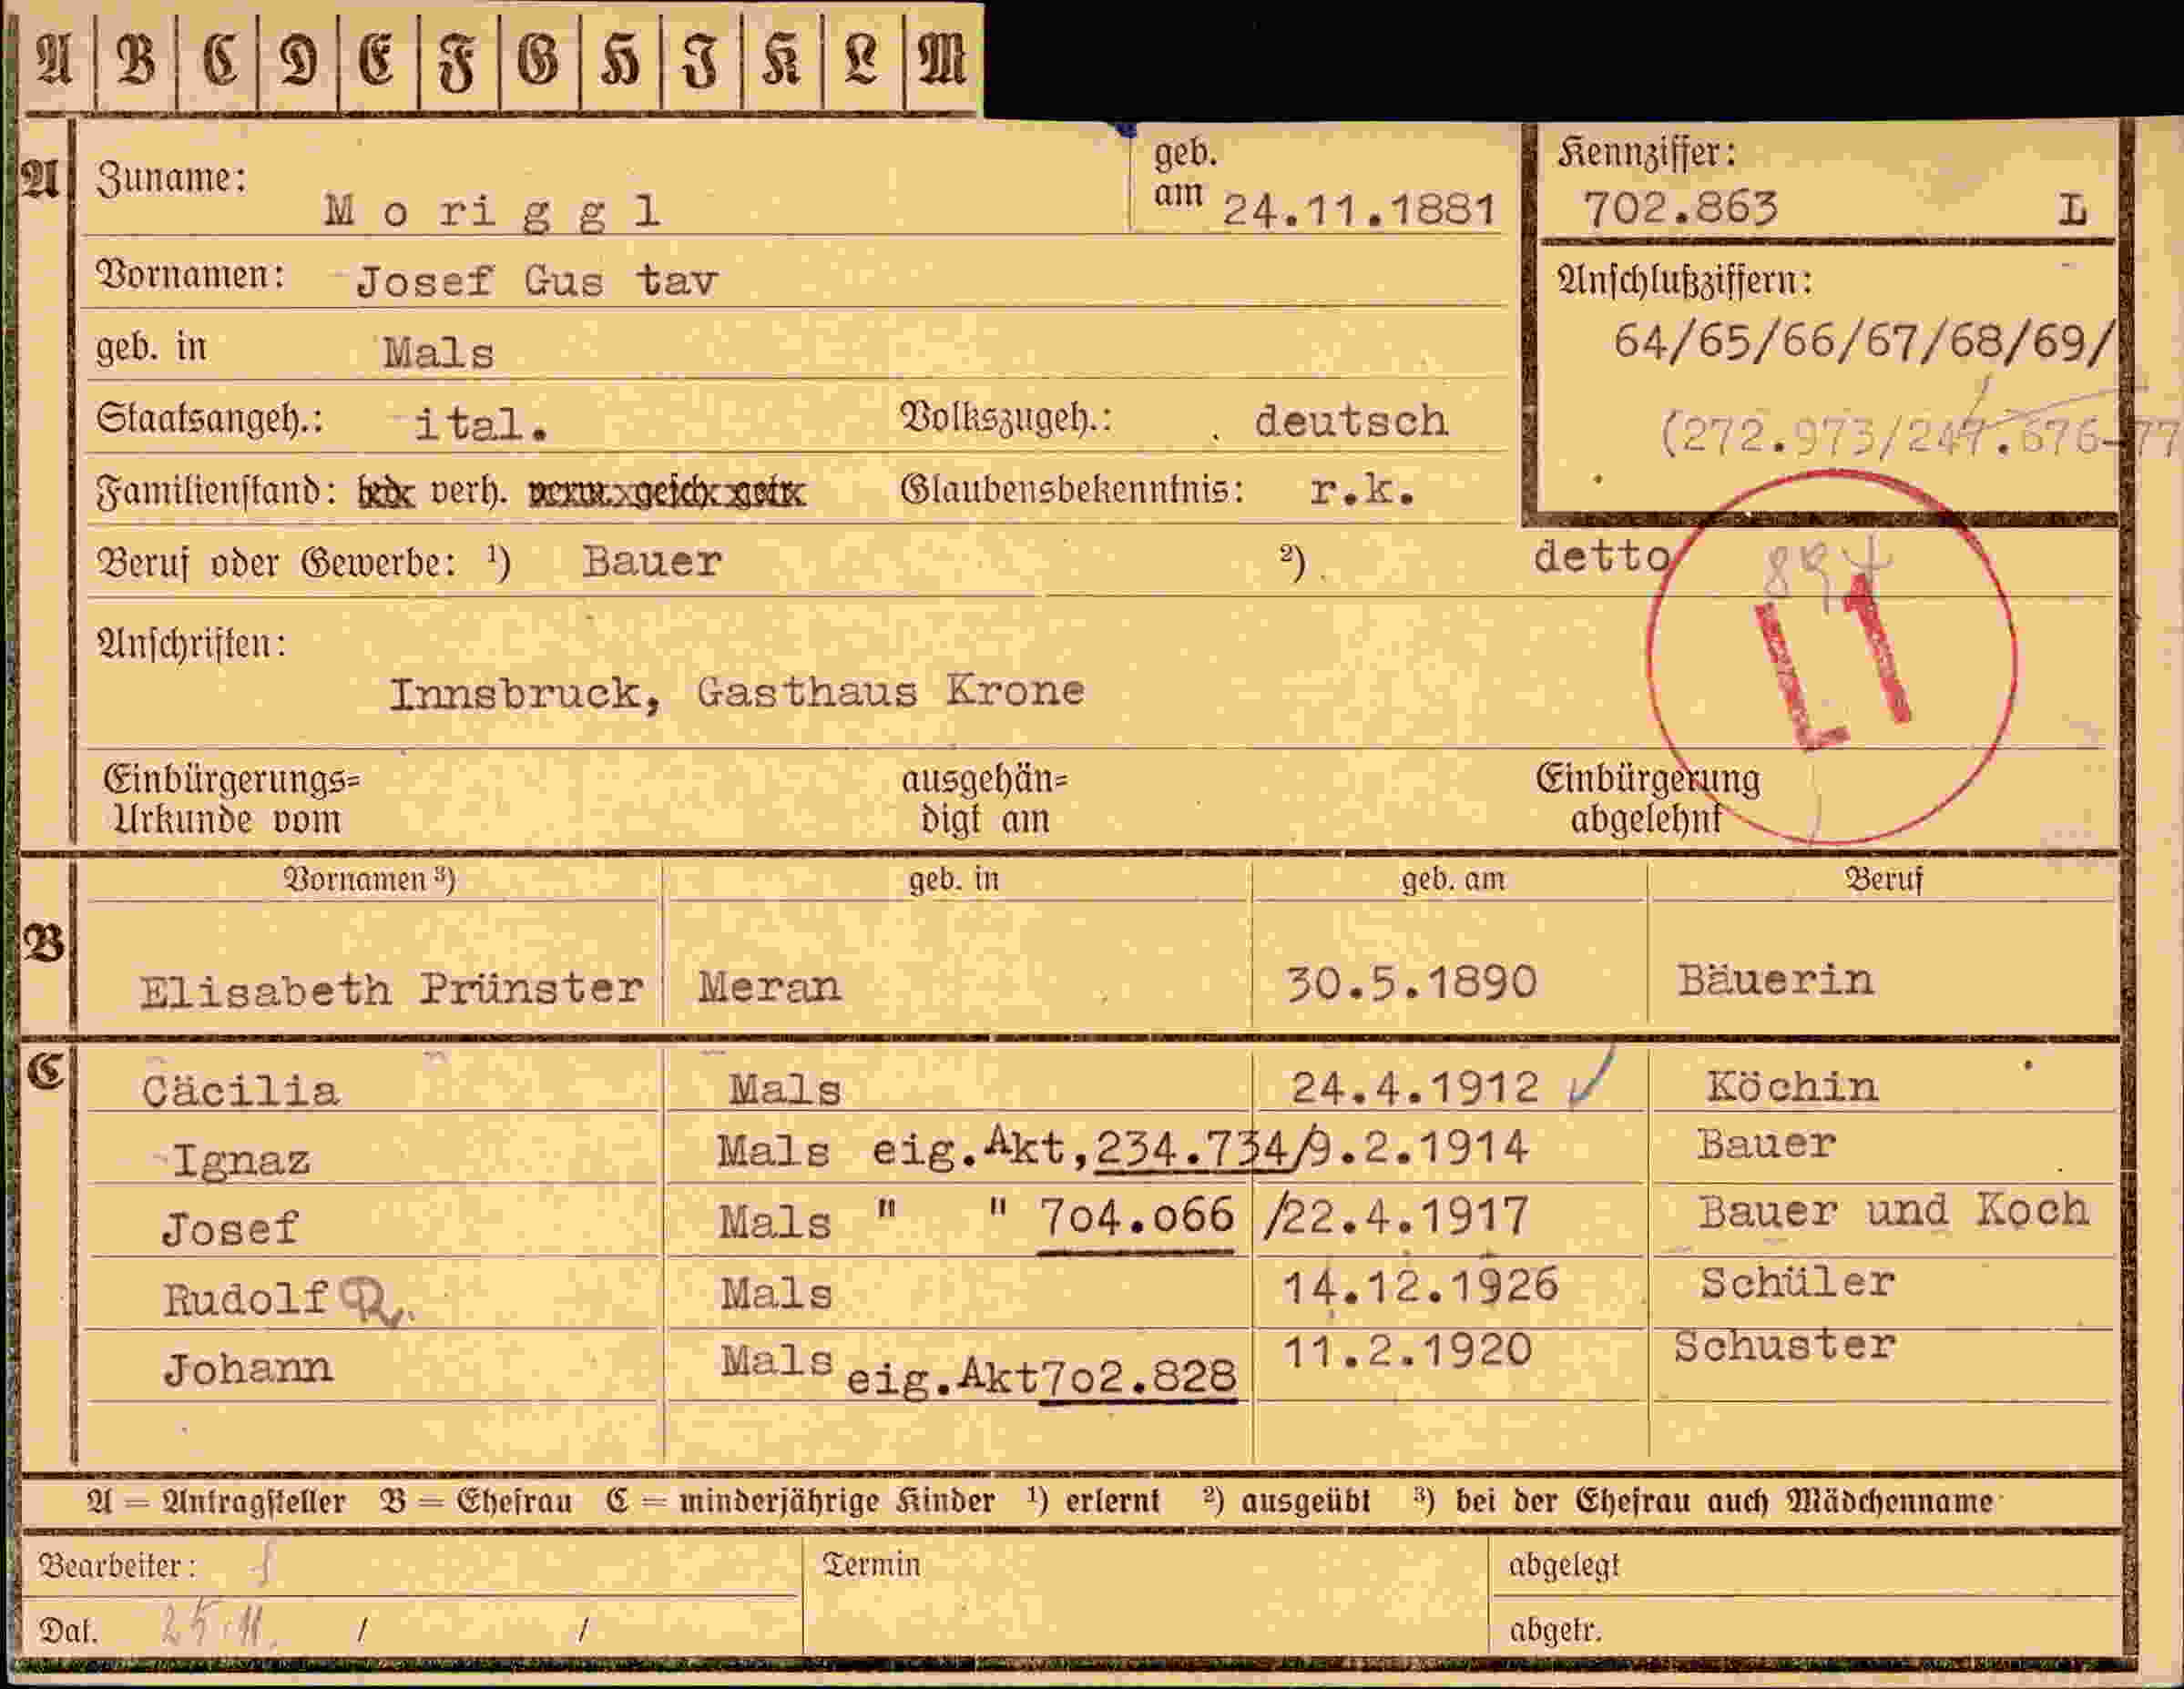 A B C D E F G H I K L M
A
Zuname: Moriggl
geb. am 24.11.1881
Kennziffer:
702.863 L
Vornamen: Josef Gus tav
Anschlußziffern:
64/65/66/67/68/69/
geb. in Mals
Staatsangeh.: ital. Volkszugeh.: deutsch
(272.973/247.676-77
Familienstand: verh. Glaubensbekenntnis: r.k.
Beruf oder Gewerbe: ¹) Bauer ²) detto
L1
Anschriften:
Innsbruck, Gasthaus Krone
Einbürgerungs=
Urkunde vom
ausgehän=
digt am
Einbürgerung
abgelehnt
Vornamen ³) geb. in geb. am Beruf
B
Elisabeth Prünster Meran 30.5.1890 Bäuerin
C
Cäcilia Mals 24.4.1912 Köchin
Ignaz Mals eig.Akt,234.734/9.2.1914 Bauer
Josef Mals " " 704.066 /22.4.1917 Bauer und Koch
Rudolf R. Mals 14.12.1926 Schüler
Johann Mals eig.Akt702.828 11.2.1920 Schuster
A = Antragsteller B = Ehefrau C = minderjährige Kinder ¹) erlernt ²) ausgeübt ³) bei der Ehefrau auch Mädchenname
Bearbeiter: Termin abgelegt
Dat. 25.11. / / abgetr.